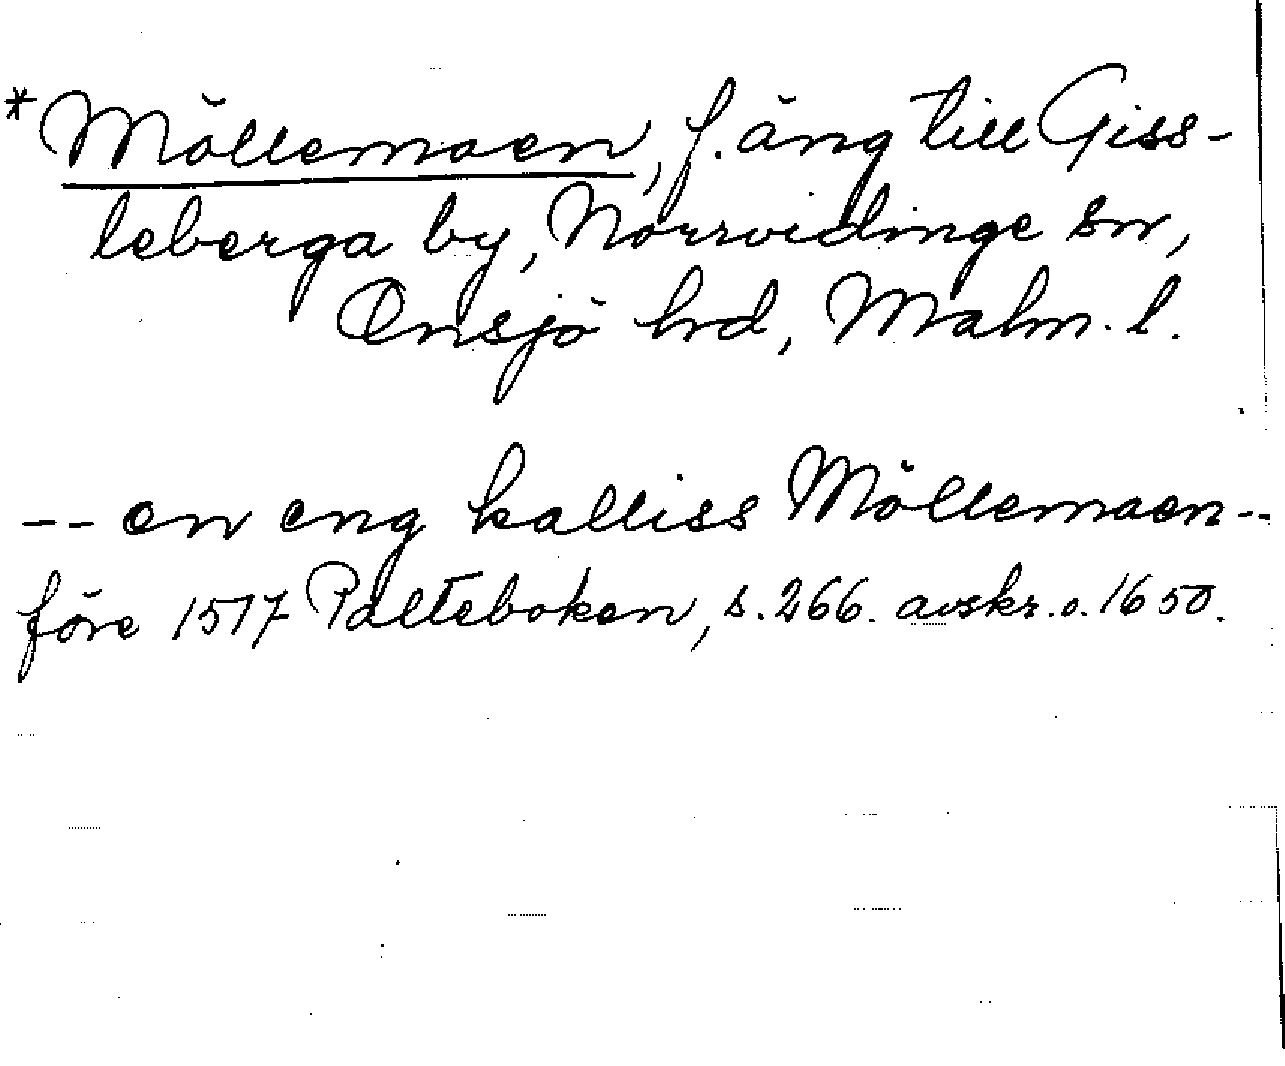 *Möllemaen, f. äng till Giss-
leberga by, Norrvidinge sn,
Onsjö hrd, Malm. l.
-- en eng kalliss Möllemaen --
före 1517 Palteboken, s. 266. avskr. o. 1650.